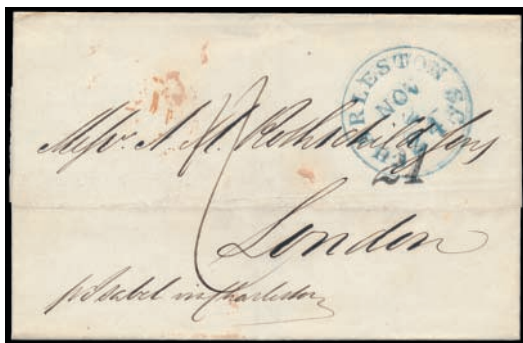 CHARLESTON S.C.
NOV
21
Messrs. N. M. Rothschild & Sons
London
p Isabel via Charleston